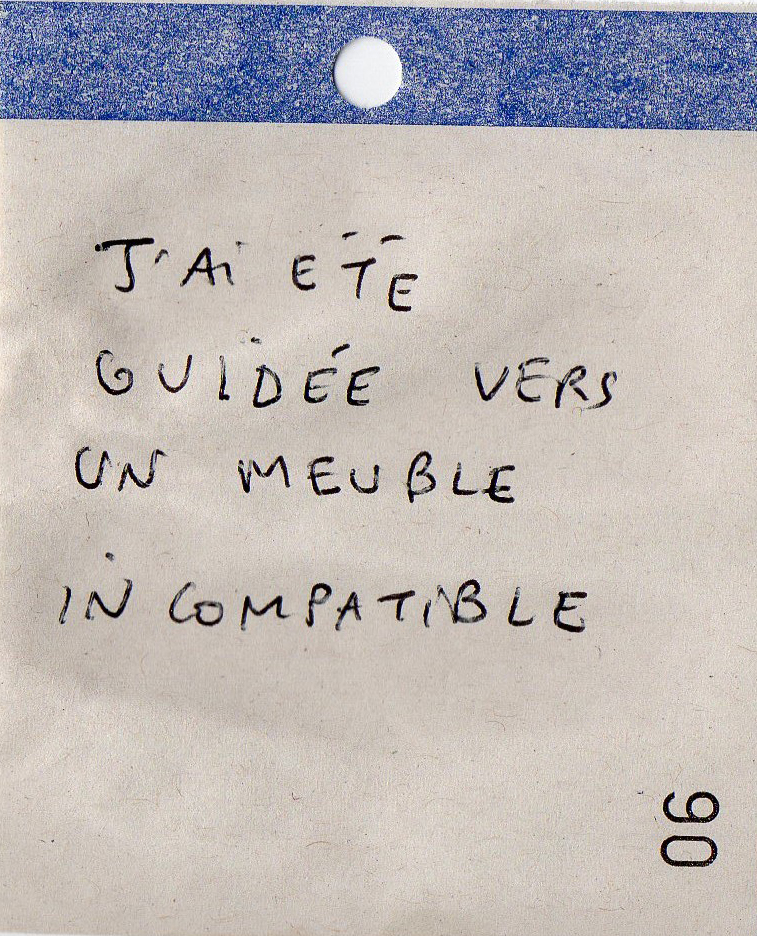 J'Ai ÉTÉ
GUiDÉE VERS
UN MEUBLE
INCOMPATIBLE
90